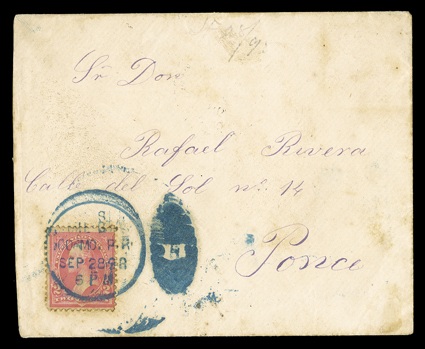 Sr Don
Rafael Rivera
Calle del Sol no. 14
Ponce
COAMO, P.R
SEP 28 98R
5 PM
2 2